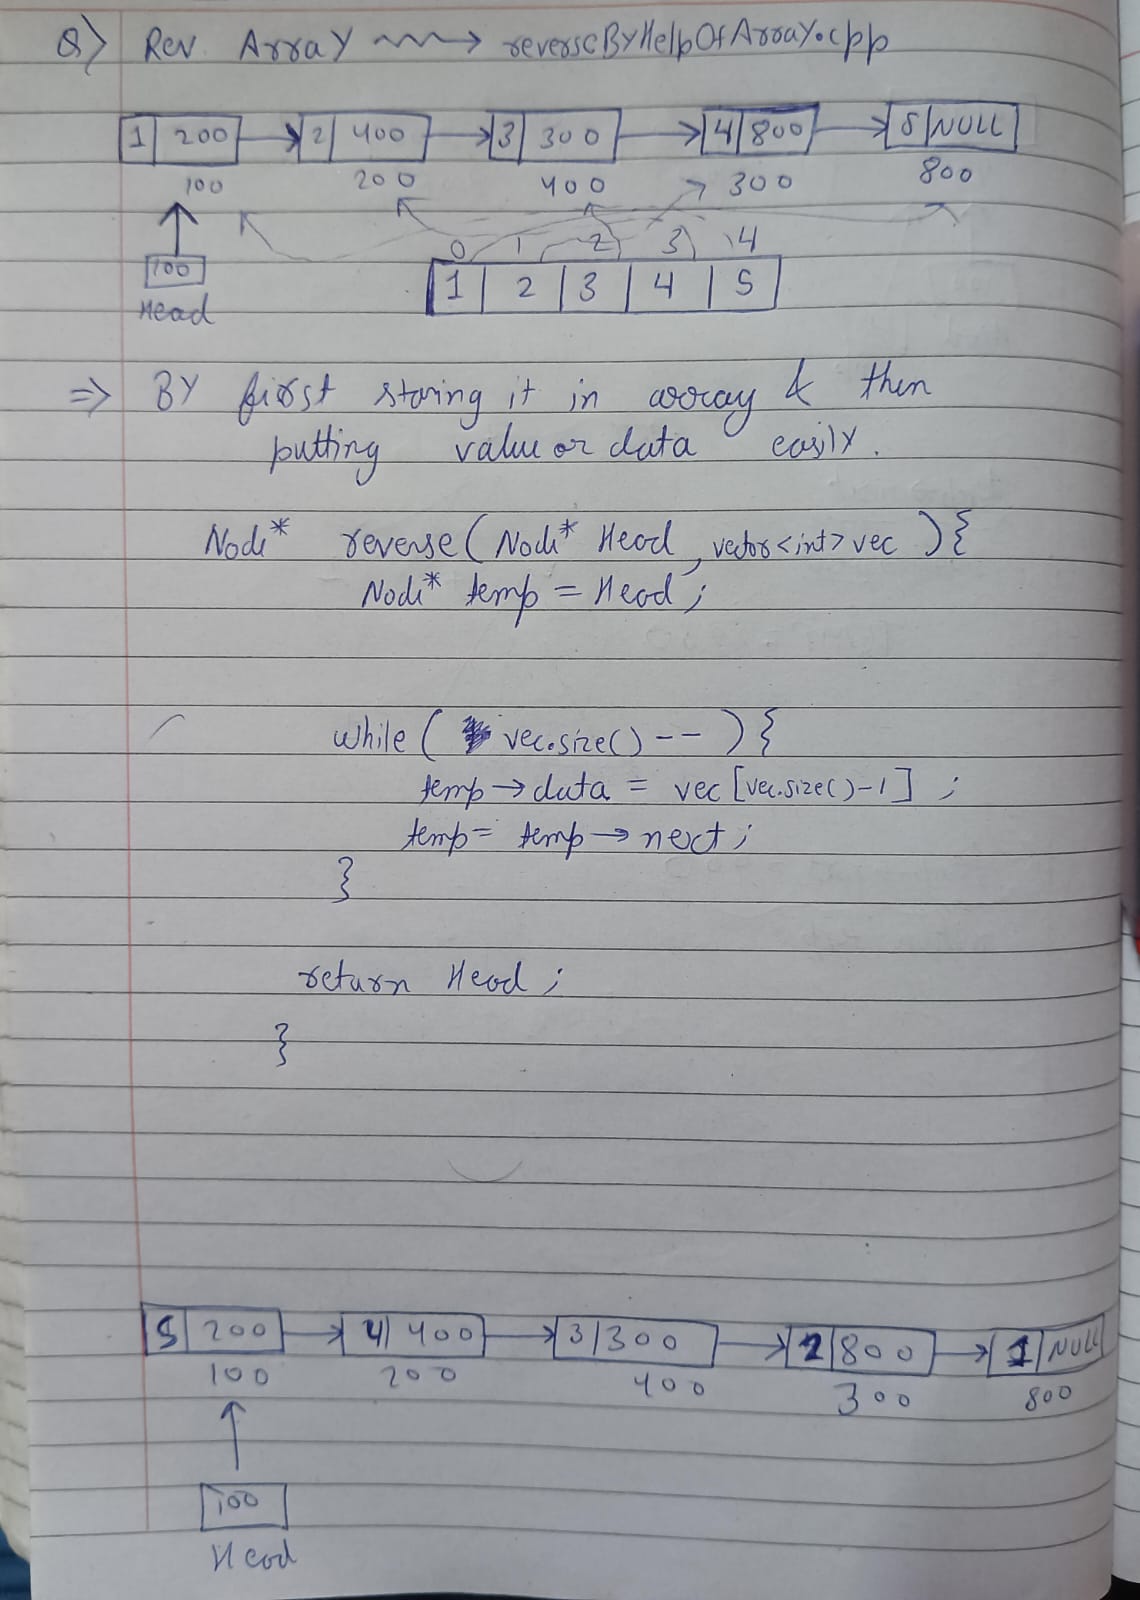 Q) Rev. Array → reverseByHelpOfArray.cpp
1 | 200 → 2 | 400 → 3 | 300 → 4 | 800 → 5 | NULL
100 200 400 300 800
0 1 2 3 4
100
1 | 2 | 3 | 4 | 5
Head
⇒ BY first storing it in array & then
putting value or data easily.
Node* reverse(Node* Head, vector<int> vec){
Node* temp = Head;
while( vec.size()-- ){
temp→data = vec[vec.size()-1];
temp = temp→next;
}
return Head;
}
5 | 200 → 4 | 400 → 3 | 300 → 2 | 800 → 1 | NULL
100 200 400 300 800
100
Head